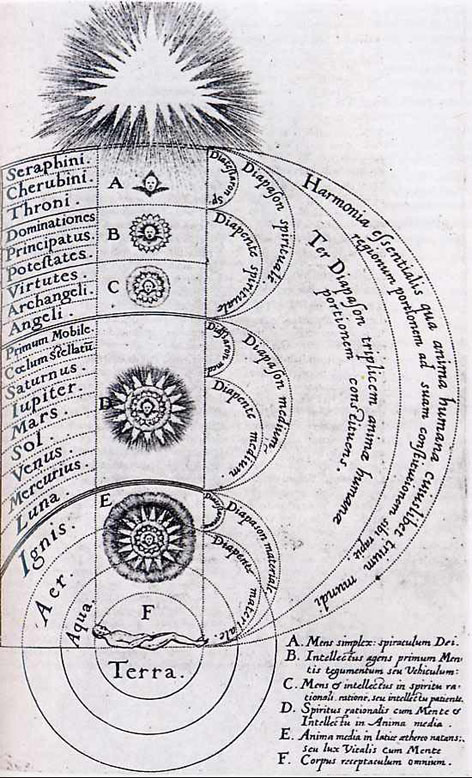 Seraphini.
Cherubini.
Throni.
Dominationes
Principatus.
Potestates.
Virtutes.
Archangeli.
Angeli.
Primum Mobile.
Cœlum stellatū
Saturnus.
Iupiter.
Mars.
Sol.
Venus.
Mercurius.
Luna.
Ignis.
Aer.
Aqua.
Terra.
A
B
C
D
E
F
Diatessaron sp
Diapason spirituale.
Diapente spirituale
Diapason medium.
Diapente medium.
Diapason materiale
Diapente materiale.
Harmonia essentialis qua anima humana cuiuslibet trium mundi
regionum portionem ad suam constitutionem sibi rapit
Ter Diapason triplicem animæ humanæ
portionem constituens.
A. Mens simplex: spiraculum Dei.
B. Intellectus agens primum Men-
tis tegumentum seu Vehiculum:
C. Mens & intellectus in spiritu ra-
tionali, ratione, seu intellectu patiente.
D. Spiritus rationalis cum Mente &
Intellectu in Anima media.
E. Anima media in latice æthereo natans:,
seu lux Vitalis cum Mente
F. Corpus receptaculum omnium.